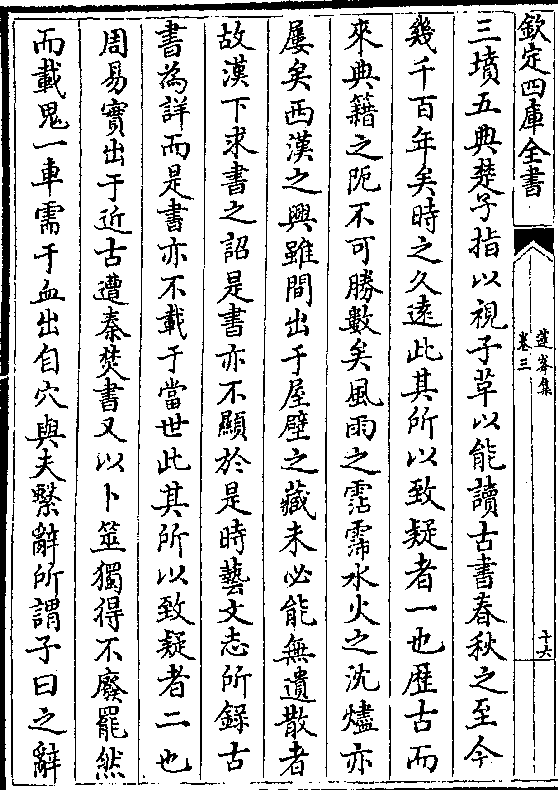 欽定四庫全書
蓬峯集
卷三
十六
三墳五典楚子指以視子革以能讀古書春秋之至今
幾千百年矣時之久遠此其所以致疑者一也歴古而
來典籍之阨不可勝數矣風雨之霑霈水火之沈燼亦
屢矣西漢之興雖間出于屋壁之藏未必能無遺散者
故漢下求書之詔是書亦不顯於是時藝文志所録古
書為詳而是書亦不載于當世此其所以致疑者二也
周易實出于近古遭秦焚書又以卜筮獨得不廢罷然
而載鬼一車需于血出自穴與夫繫辭所謂子曰之辭